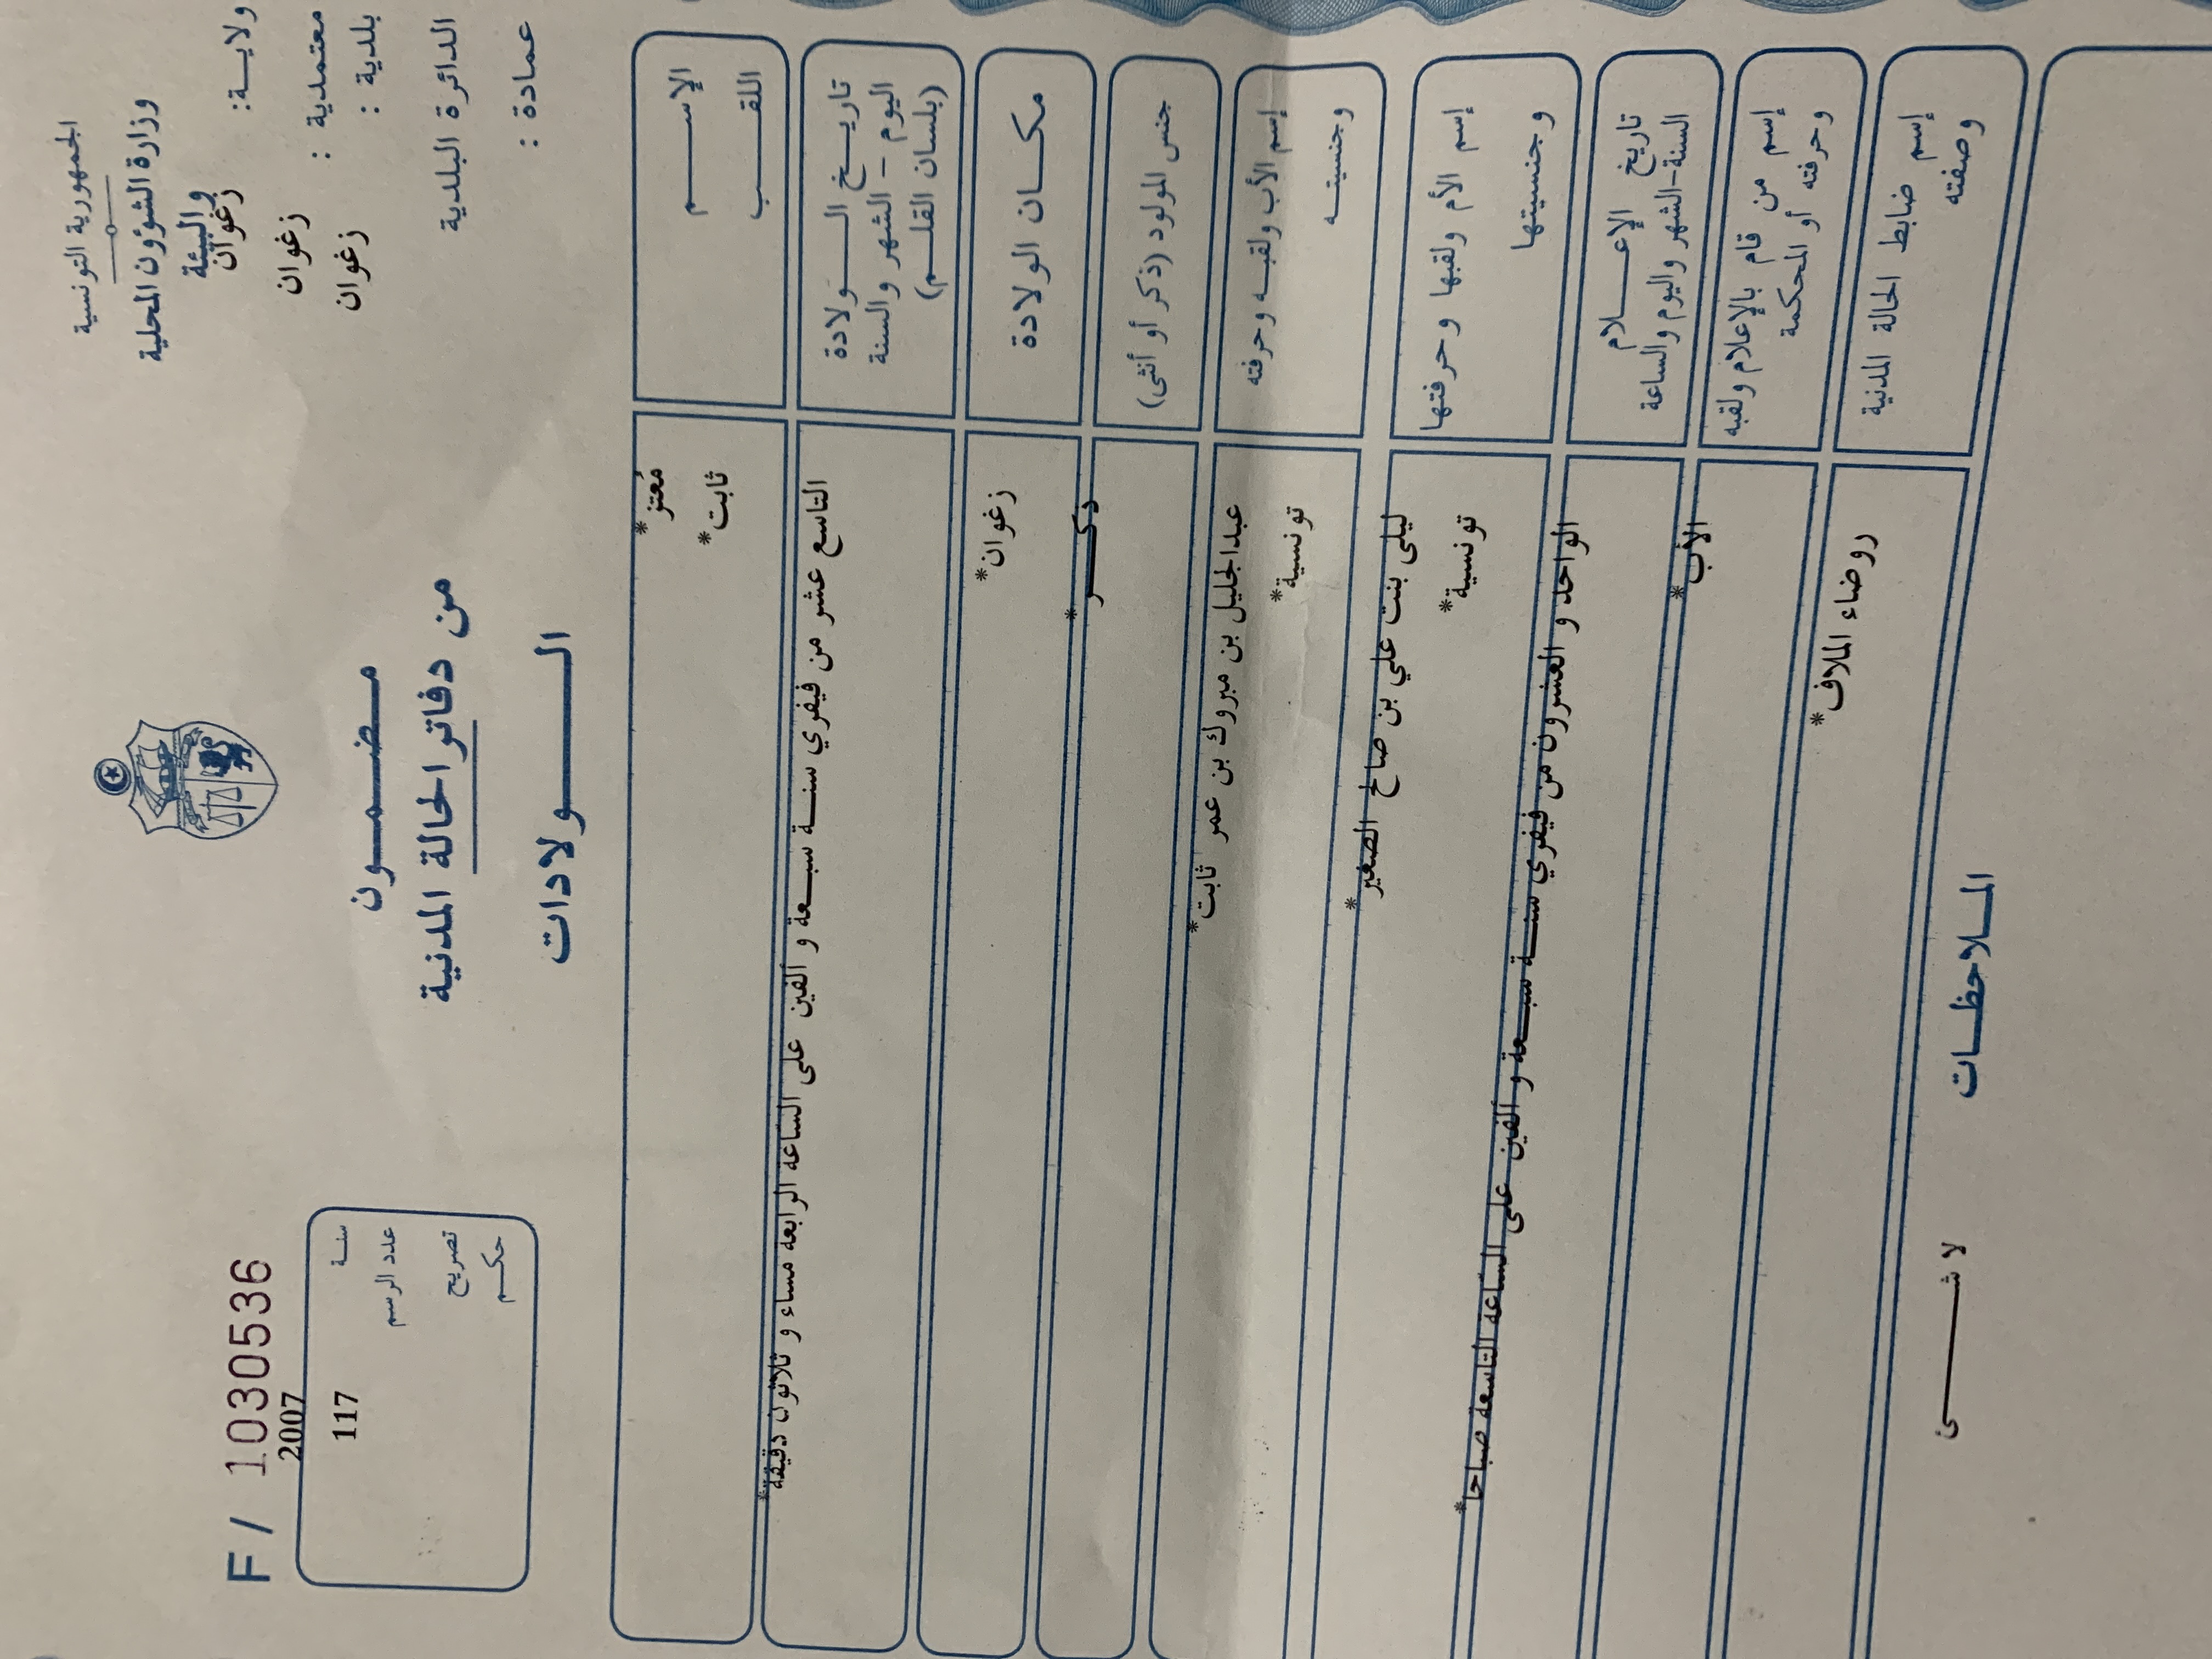 الجمهورية التونسية
وزارة الشؤون المحلية
والبيئة
ولايــة: زغوان
معتمدية : زغوان
بلدية : زغوان
الدائرة البلدية
عمادة :
مـضـمــون
من دفاتر الحالة المدنية
الــــولادات
F / 1030536
2007
سنــة
117
عدد الرسم
تصريح
حكــم
الإســــم
مُعتز*
اللقــــب
ثابت*
تاريــخ الــــولادة
اليوم - الشهر والسنة
(بلسان القلــم)
التاسع عشر من فيفري سنــة سبــعة و ألفين على الساعة الرابعة مساء و ثلاثون دقيقة*
مكــان الولادة
زغوان*
جنس المولود (ذكر أو أنثى)
ذكــــر*
إسم الأب ولقبــه وحرفته
عبدالجليل بن مبروك بن عمر ثابت*
وجنسيتــه
تونسية*
إسم الأم ولقبها وحرفتها
ليلى بنت علي بن صالح الصغير*
وجنسيتها
تونسية*
تاريخ الإعــــلام
السنة-الشهر واليوم والساعة
الواحد و العشرون من فيفري سنــة سبــعة و ألفين على الساعة التاسعة صباحا*
إسم من قام بالإعلام ولقبه
وحرفته أو المحكمة
الأب*
إسم ضابط الحالة المدنية
وصفته
روضاء الملاف*
المــلاحظــات
لا شــــــئ